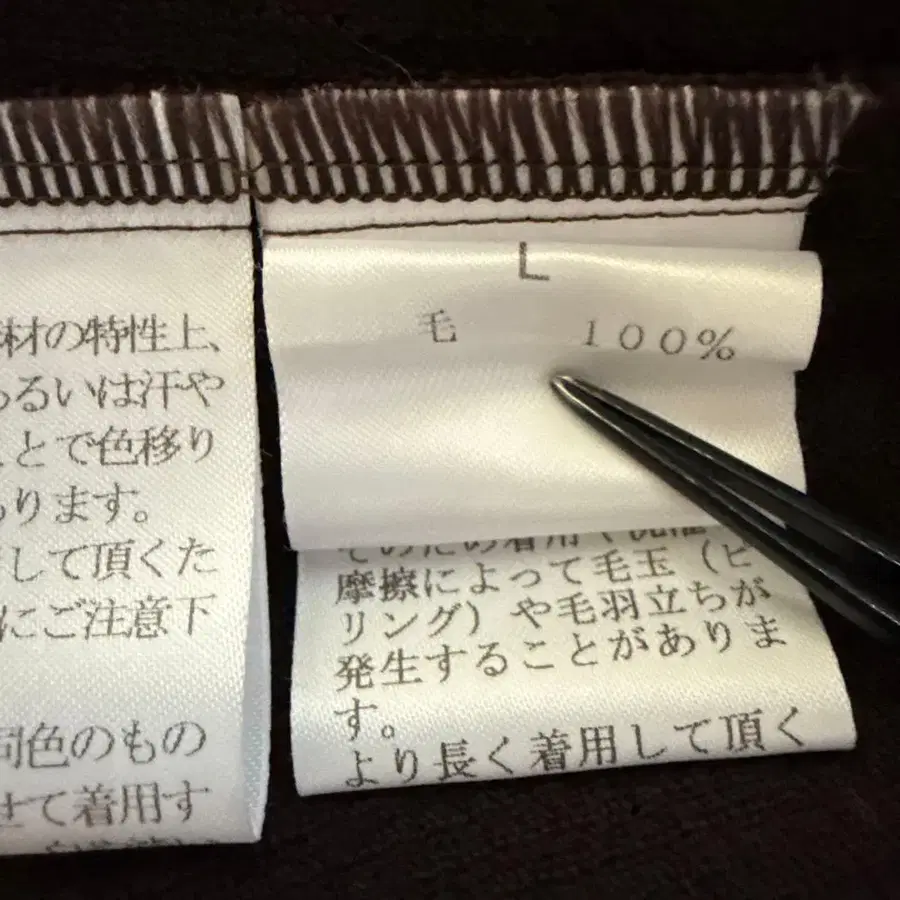 材の特性上、
るいは汗や
とで色移り
ります。
して頂くた
にご注意下
同色のもの
せて着用す
L
毛 100%
そのため着用
摩擦によって毛玉（ピ
リング）や毛羽立ちが
発生することがありま
す。
より長く着用して頂く